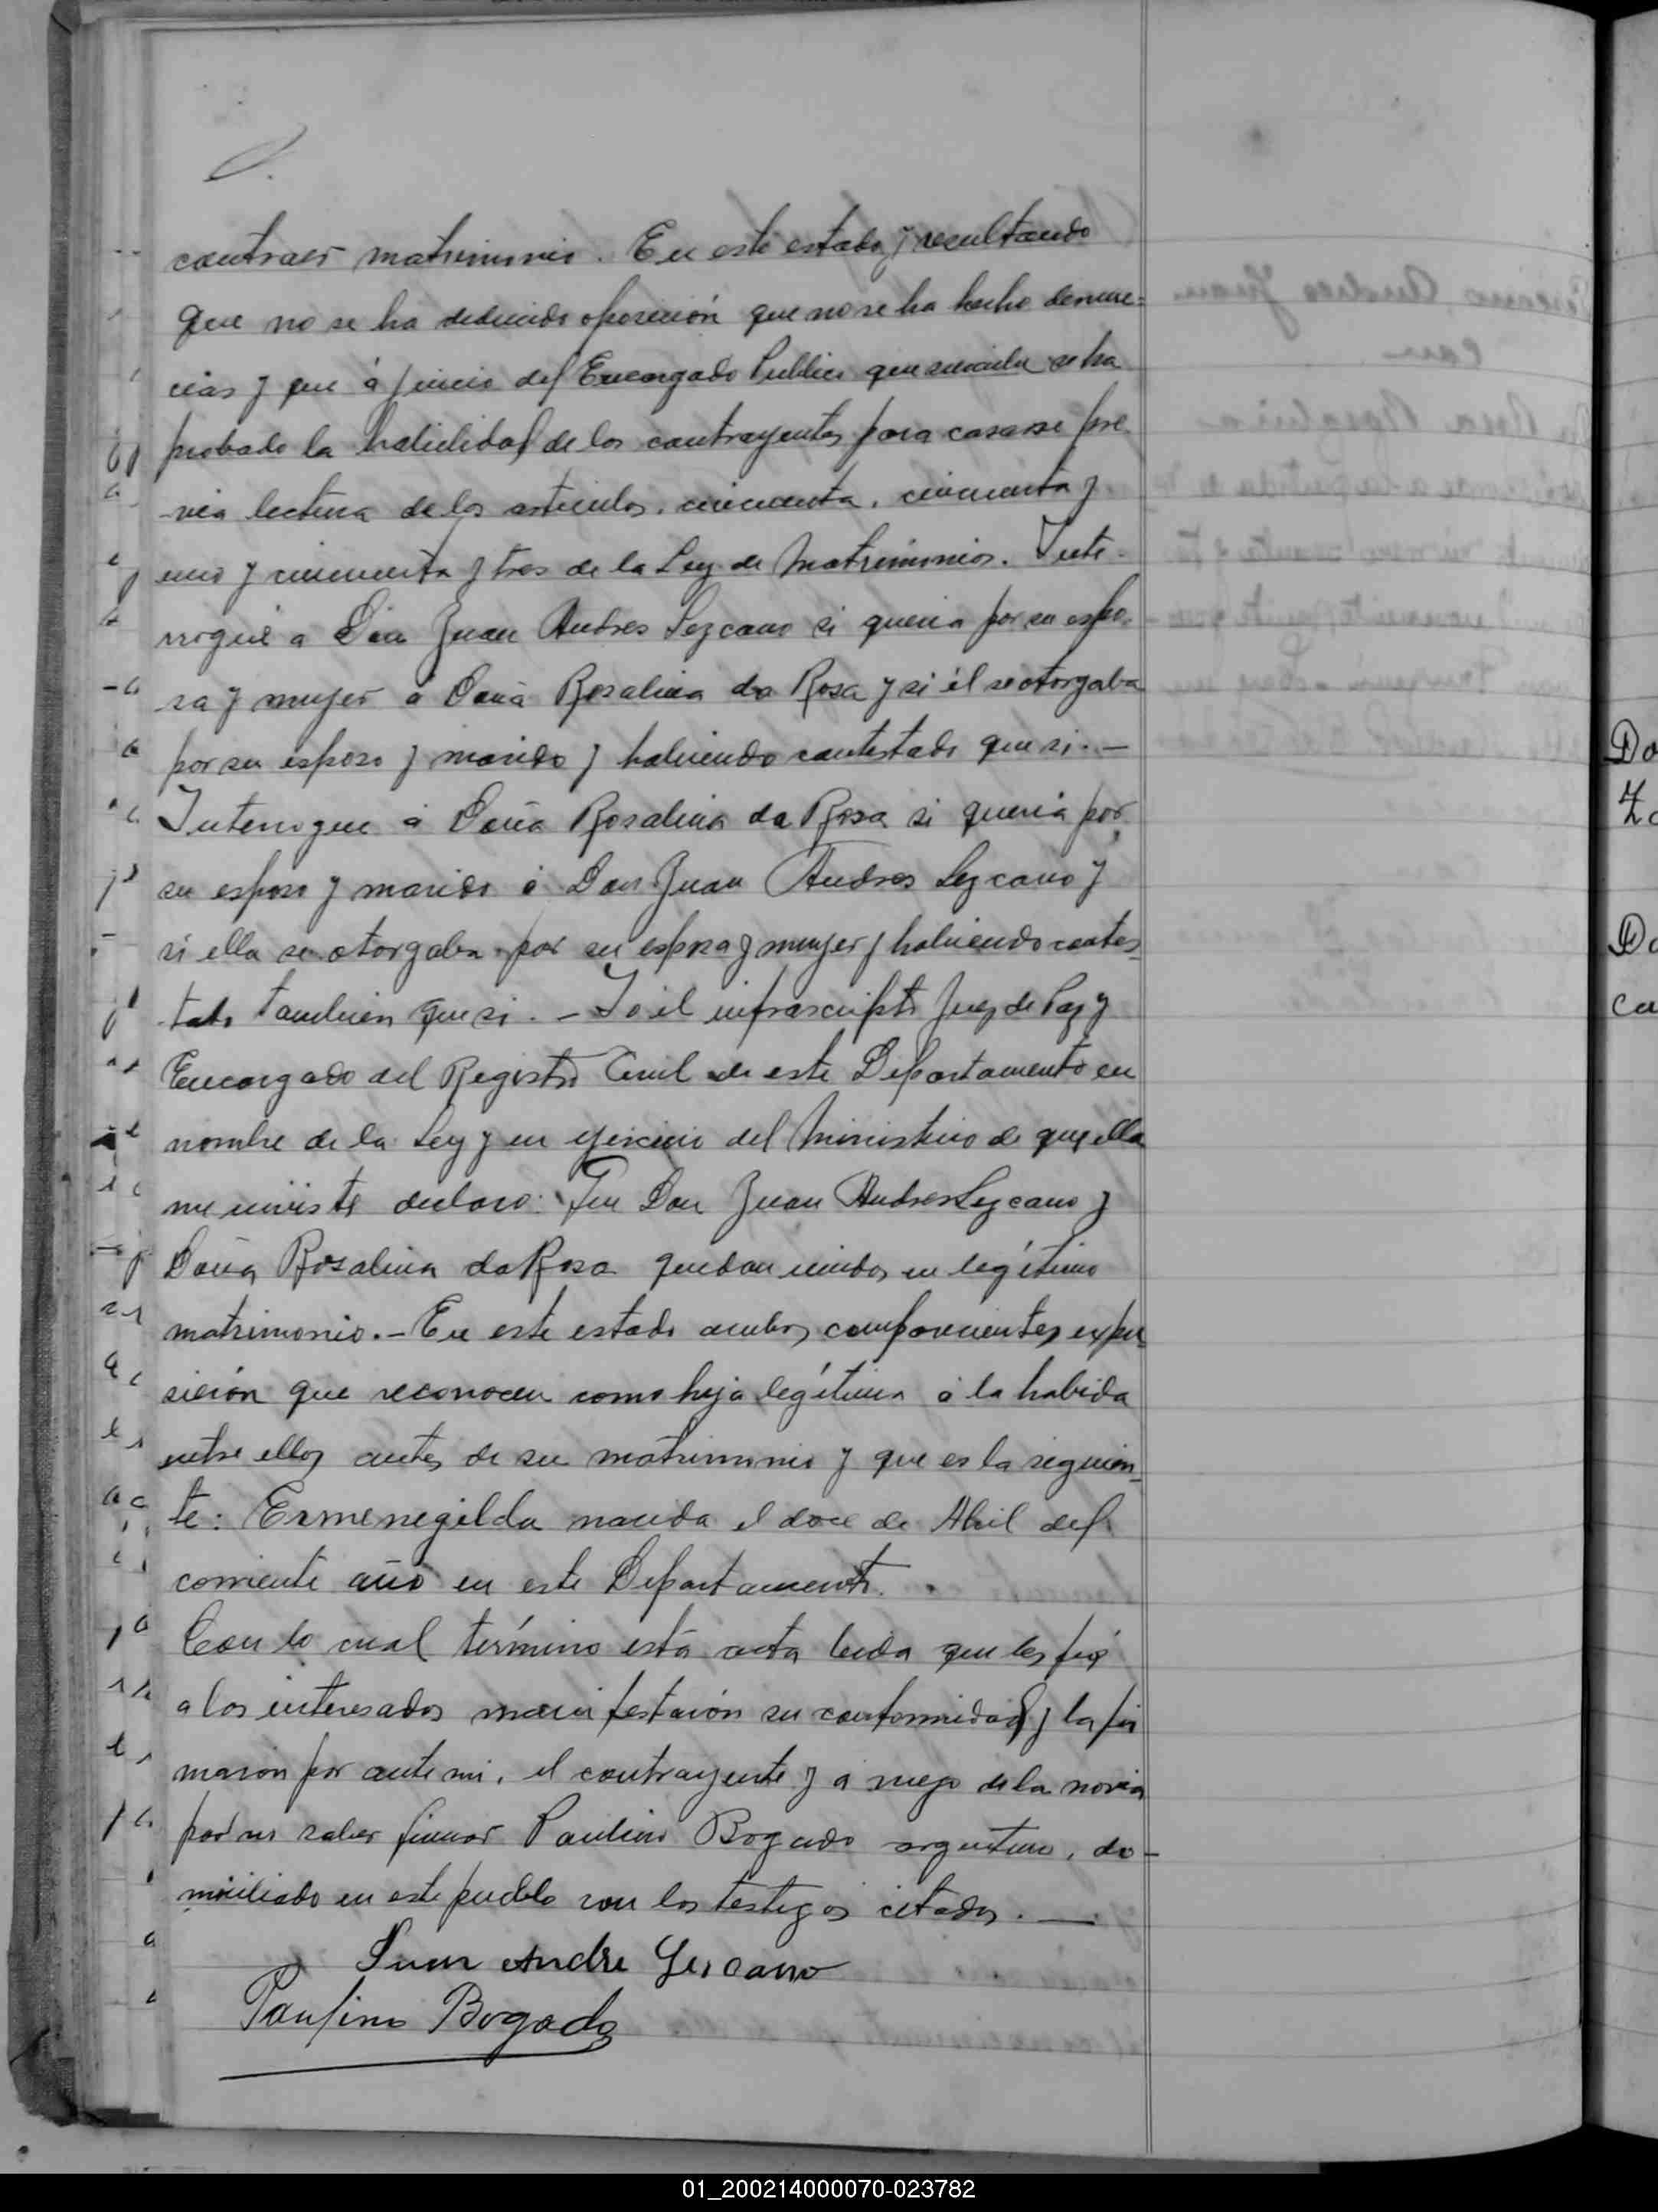 contraer matrimonio. En este estado y resultando
que no se ha deducido oposición que no se ha hecho denun=
cias y que á juicio del Encargado Publico que suscribe se ha
probado la habilidad de los contrayentes para casarse pre
-via lectura de los articulos, cincuenta, cincuenta y
uno y cincuenta y tres de la Ley de Matrimonios. Inte-
rrogué a Don Juan Andres Lezcano si queria por su espo-
sa y mujer á Doña Rosalina da Rosa y si él se otorgaba
por su esposo y marido y habiendo contestado que si.—
Interrogue á Doña Rosalina da Rosa si queria por
su esposo y marido á Don Juan Andres Lezcano y
si ella se otorgaba por su esposa y mujer y habiendo contes-
tado tambien que si.— Yo él infrascripto Juez de Paz y
Encargado del Registro Civil de este Departamento en
nombre de la Ley y en ejercicio del Ministerio de que ella
me inviste declaro: Que Don Juan Andres Lezcano y
Doña Rosalina da Rosa quedan unidos en legítimo
matrimonio.— En este estado ambos comparecientes expu-
sierón que reconocen como hija legítima á la habida
entre ellos antes de su matrimonio y que es la siguien-
te: Ermenegilda nacida el doce de Abril del
corriente año en este Departamento.
Con lo cual término está acta leida que les fué
a los interesados manifestarón su conformidad y la fir
marón por ante mi, el contrayente y a ruego de la novia
por no saber firmar Paulino Bogado argentino, do-
miciliado en este pueblo con los testigos citados.—
Juan Andre Lescano
Paulino Bogado
Do
Do
ca
01_200214000070-023782